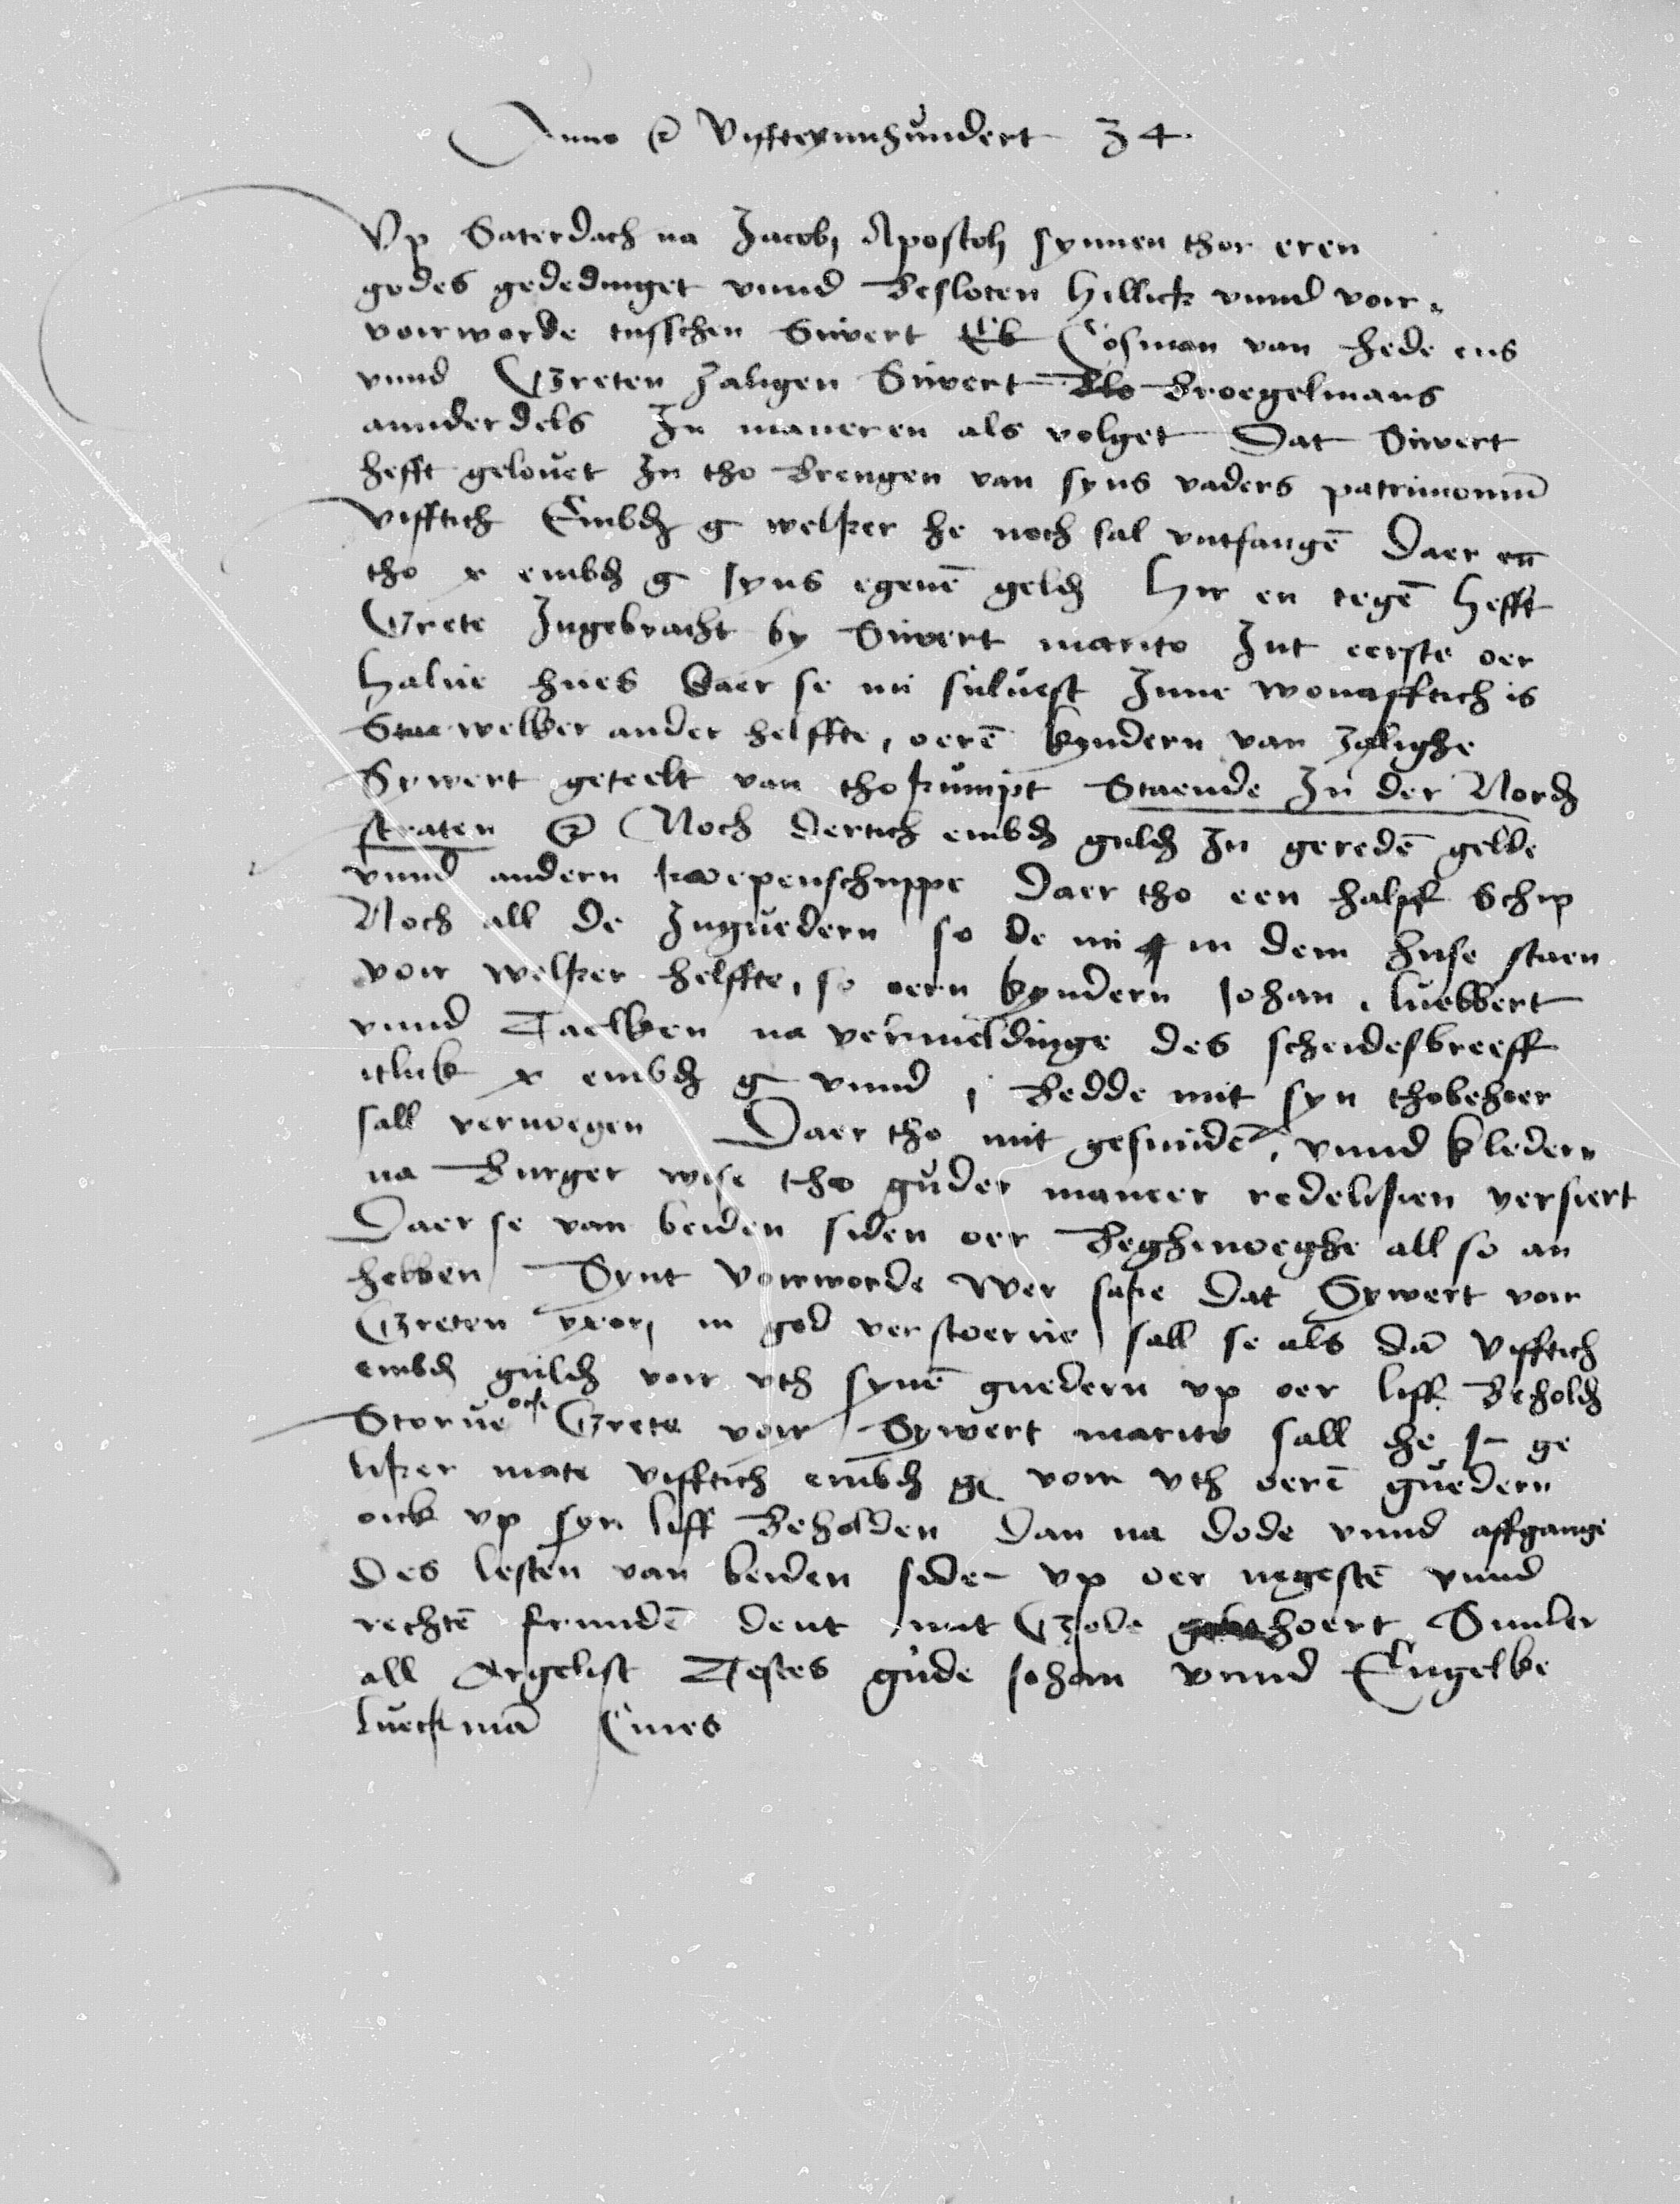 Anno etc Viffteynnhundert 34.
Vp Saterdach na Jacobi Apostoli synnen thor eren
godes gededinget vnnd besloten hillick vnnd voir,
voirworde tusschen Siwert Cosman van hede ens
vnnd Greten zaligen Siwert Broegelmans
annderdels In maneren als volget Dat Siwert
hefft gelouet In tho brengen van syns vaders patrimoniū
Vifftich Embdr g welker he noch sal vntfangē Daer en
tho x embdr g syns egenē geldr Hir en tegē hefft
Grete Ingebracht by Siwert marito Int eerste oer
halue hues daer se nu suluest Inne wonafftich is
welker ander helffte, oerē kyndern van zalighe
Sywert geteelt van thokumpt Staende In der Nordr
straten etc Noch dertich embdr guldr In geredē gelde
vnnd andern koepenschuppe Daer tho een halff schip
Noch all de Inguedern so de nu in dem huse staen
voir welker helffte, so oern kyndern Johan, luebbert
vnnd Taelken na vermeldinge des scheidesbreeff
itlick x embdr g vnnd j bedde mit syn thobehoer
sall vernoegen Daer tho mit gesmidē, vnnd kledern
na burger wise tho guder maneer redeliken versiert
Daer se van beiden siden oer beghenoeghe all so an
hebben Synt voirworde Wer sake Dat Sywert voir
Greten vxori in god verstoerue sall se als dā Vifftich
embdr guldr voir vth synē guedern vp oer liff beholdr
Storue ock Grete voir Sywert marito sall he In ge
liker mate vifftich embdr g voir vth oerē guedern
oick vp syn liff beholden Dan na dode vnnd affgange
Des lesten van beiden siden vp oer negestē vnnd
rechtē frundē dent mit Gode hoert Sunder
all Argelist Testes gude Johan vnnd Engelke
lueckmā Ciues